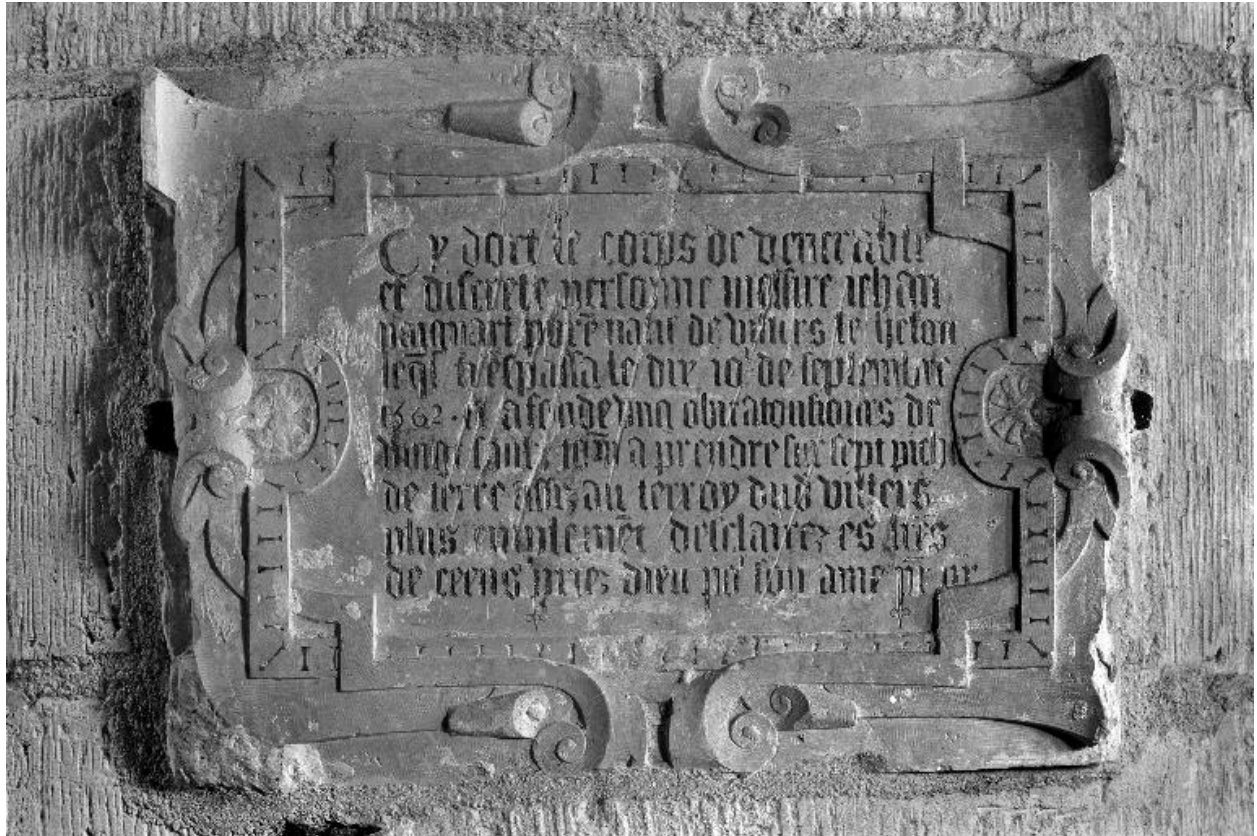 Cy dort le corps de venerable
et discrete personne messire iehan
paiquart pbrē natif de villers le
leq̄l trespassa le dix 10ᵉ de septembre
1562 et a fonde cinq obitz a tousiours de
vingt santz a prendre sur sept piche
de terre assiz au terroy dud villers
plus desclairez es lrēs
de ceens priez dieu poʳ son ame